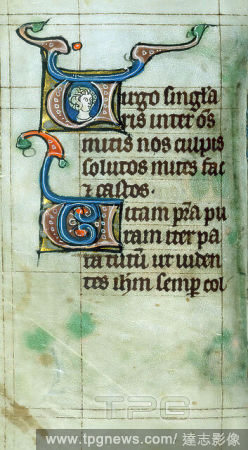 Uirgo singla
ris inter os
mitis nos culpis
solutos mites fac
⁊ castos.
Uitam pra pu
ram iter pa
ra tutū ut uiden
tes ihm semp col
TPG
www.tpgnews.com/ 達志影像